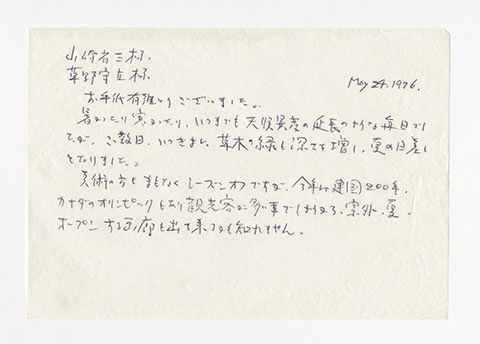 山崎省三様
草野守立様
May 24. 1976.
お手紙有難とうございました。
暑かったり寒かったり、いつまでも天候異変の延長のような毎日でし
たが、この数日、いっきょに草木の緑も深さを増し、夏の日差し
となりました。
美術の方もまもなくシーズンオフですが、今年は建国200年、
カナダのオリンピックもあり観光客が多い事でしょうから、案外、夏、
オープンする画廊も出て来るかも知れません。